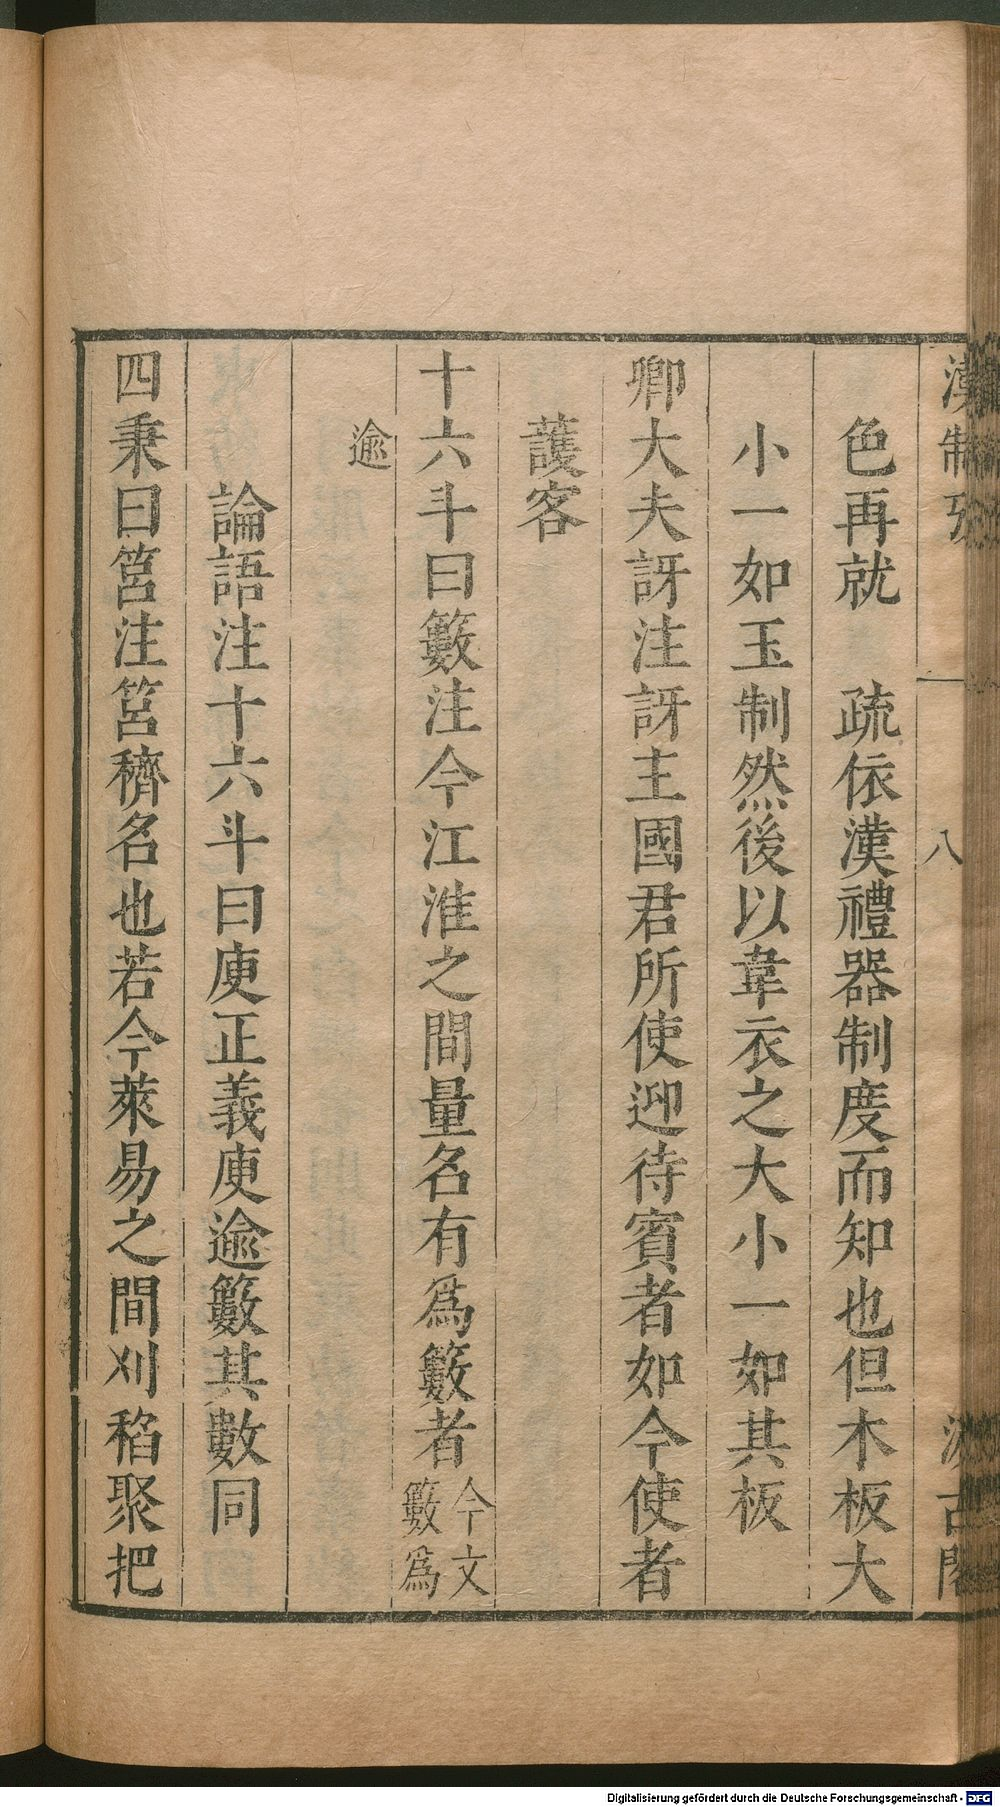 漢制攷
八
汲古閣
色再就　疏依漢禮器制度而知也但木板大
小一如玉制然後以韋衣之大小一如其板
卿大夫訝注訝主國君所使迎待賓者如今使者
護客
十六斗曰籔注今江淮之間量名有爲籔者今文籔爲
逾
論語注十六斗曰庾正義庾逾籔其數同
四秉曰筥注筥穧名也若今萊易之間刈稻聚把
Digitalisierung gefördert durch die Deutsche Forschungsgemeinschaft - DFG